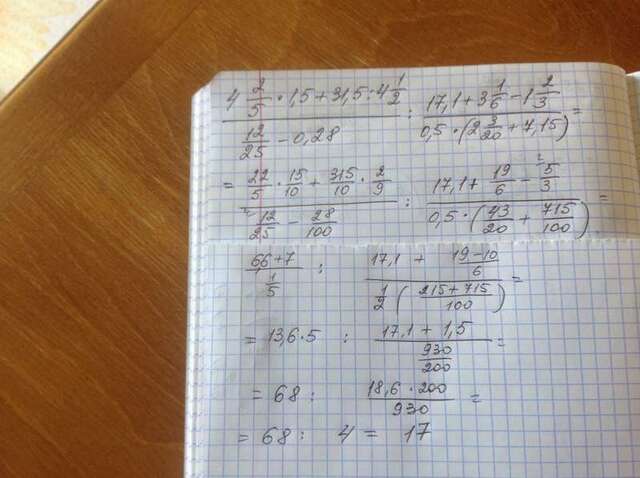 4 2/5 · 1,5 + 31,5 : 4 1/2 / 12/25 - 0,28 : 17,1 + 3 1/6 - 1 2/3 / 0,5 · (2 3/20 + 7,15) =
= 22/5 · 15/10 + 315/10 · 2/9 / 12/25 - 28/100 : 17,1 + 19/6 - 5/3 / 0,5 · (43/20 + 715/100) =
6,6 + 7 / 1/5 : 17,1 + 19-10/6 / 1/2 (215+715/100) =
= 13,6 · 5 : 17,1 + 1,5 / 930/200 =
= 68 : 18,6 · 200 / 930 =
= 68 : 4 = 17